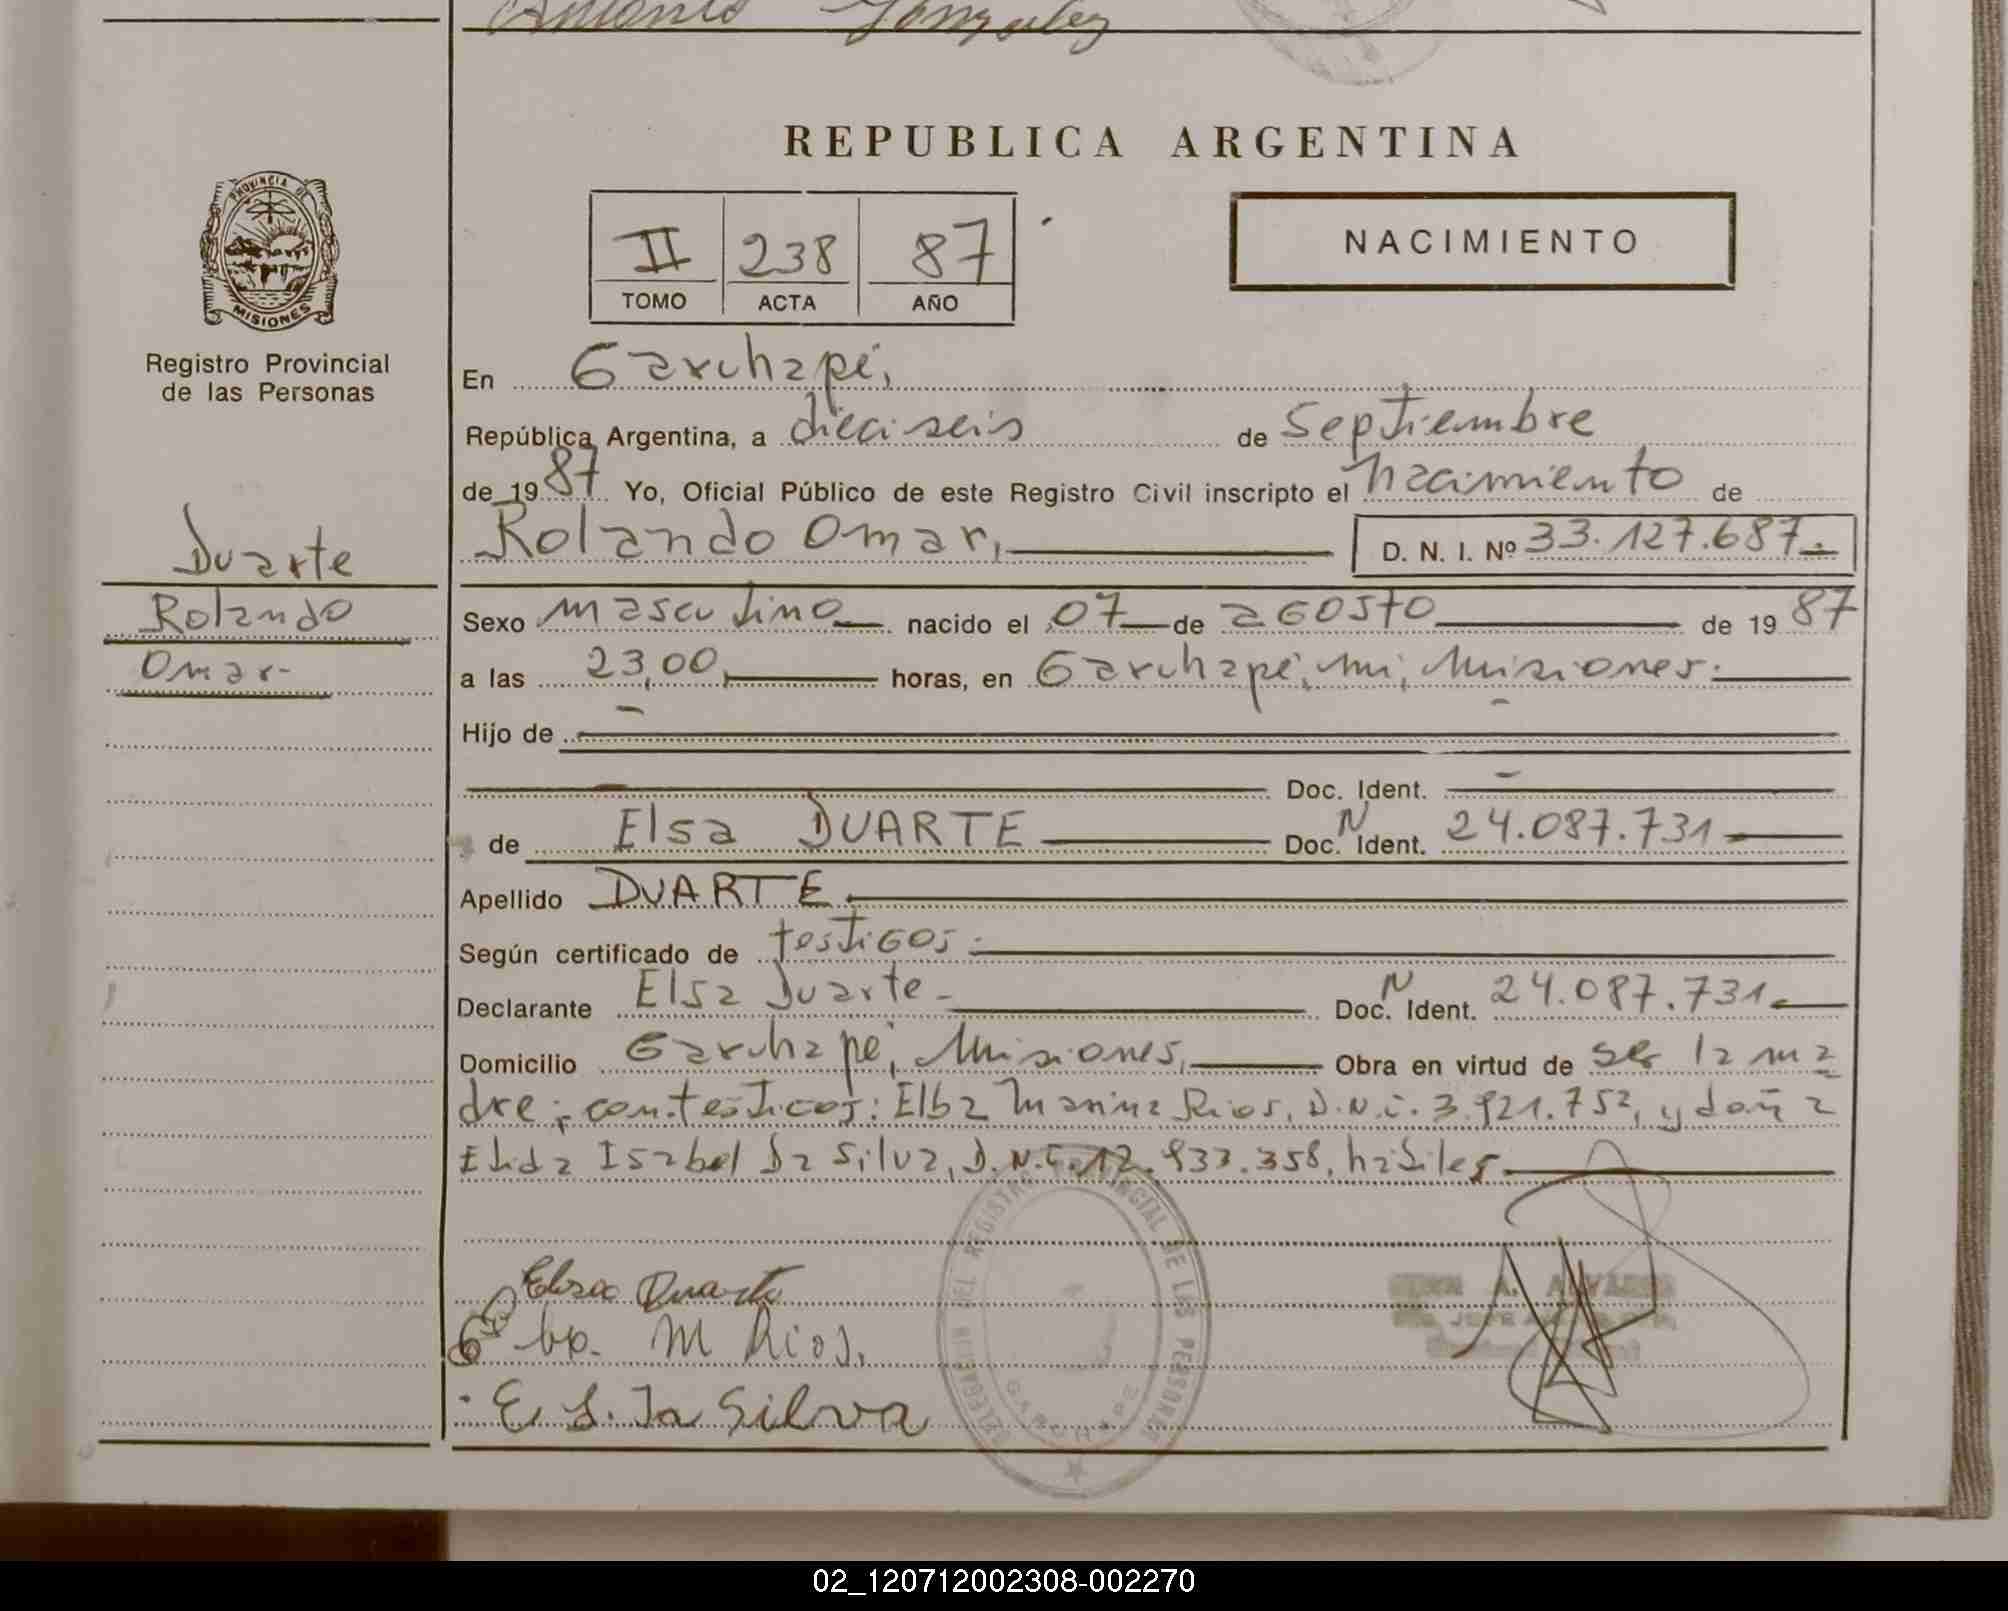 Antonio Gonzalez
REPUBLICA ARGENTINA
PROVINCIA DE
MISIONES
Registro Provincial
de las Personas
II 238 87
TOMO ACTA AÑO
NACIMIENTO
En Garuhapé,
República Argentina, a dieciseis de septiembre
de 1987 Yo, Oficial Público de este Registro Civil inscripto el nacimiento de
Rolando Omar, D. N. I. Nº 33.127.687.-
Duarte
Rolando
Omar-
Sexo masculino nacido el 07 de agosto de 1987
a las 23,00, horas, en Garuhapé, mi, Misiones.
Hijo de -
Doc. Ident. -
de Elsa DUARTE Doc. N Ident. 24.087.731
Apellido DUARTE.
Según certificado de testigos.
Declarante Elsa Duarte- Doc. N Ident. 24.087.731.
Domicilio Garuhapé, Misiones, Obra en virtud de ser la ma
dre; con testigos: Elba Marina Rios, D.N.i. 3.921.752, y doña
Elida Isabel Da Silva, D.N.I. 12.933.358, habiles.
DELEGACION DEL REGISTRO PROVINCIAL DE LAS PERSONAS
GARUHAPE
Elsa Duarte
M Rios.
E I. Da Silva
02_120712002308-002270